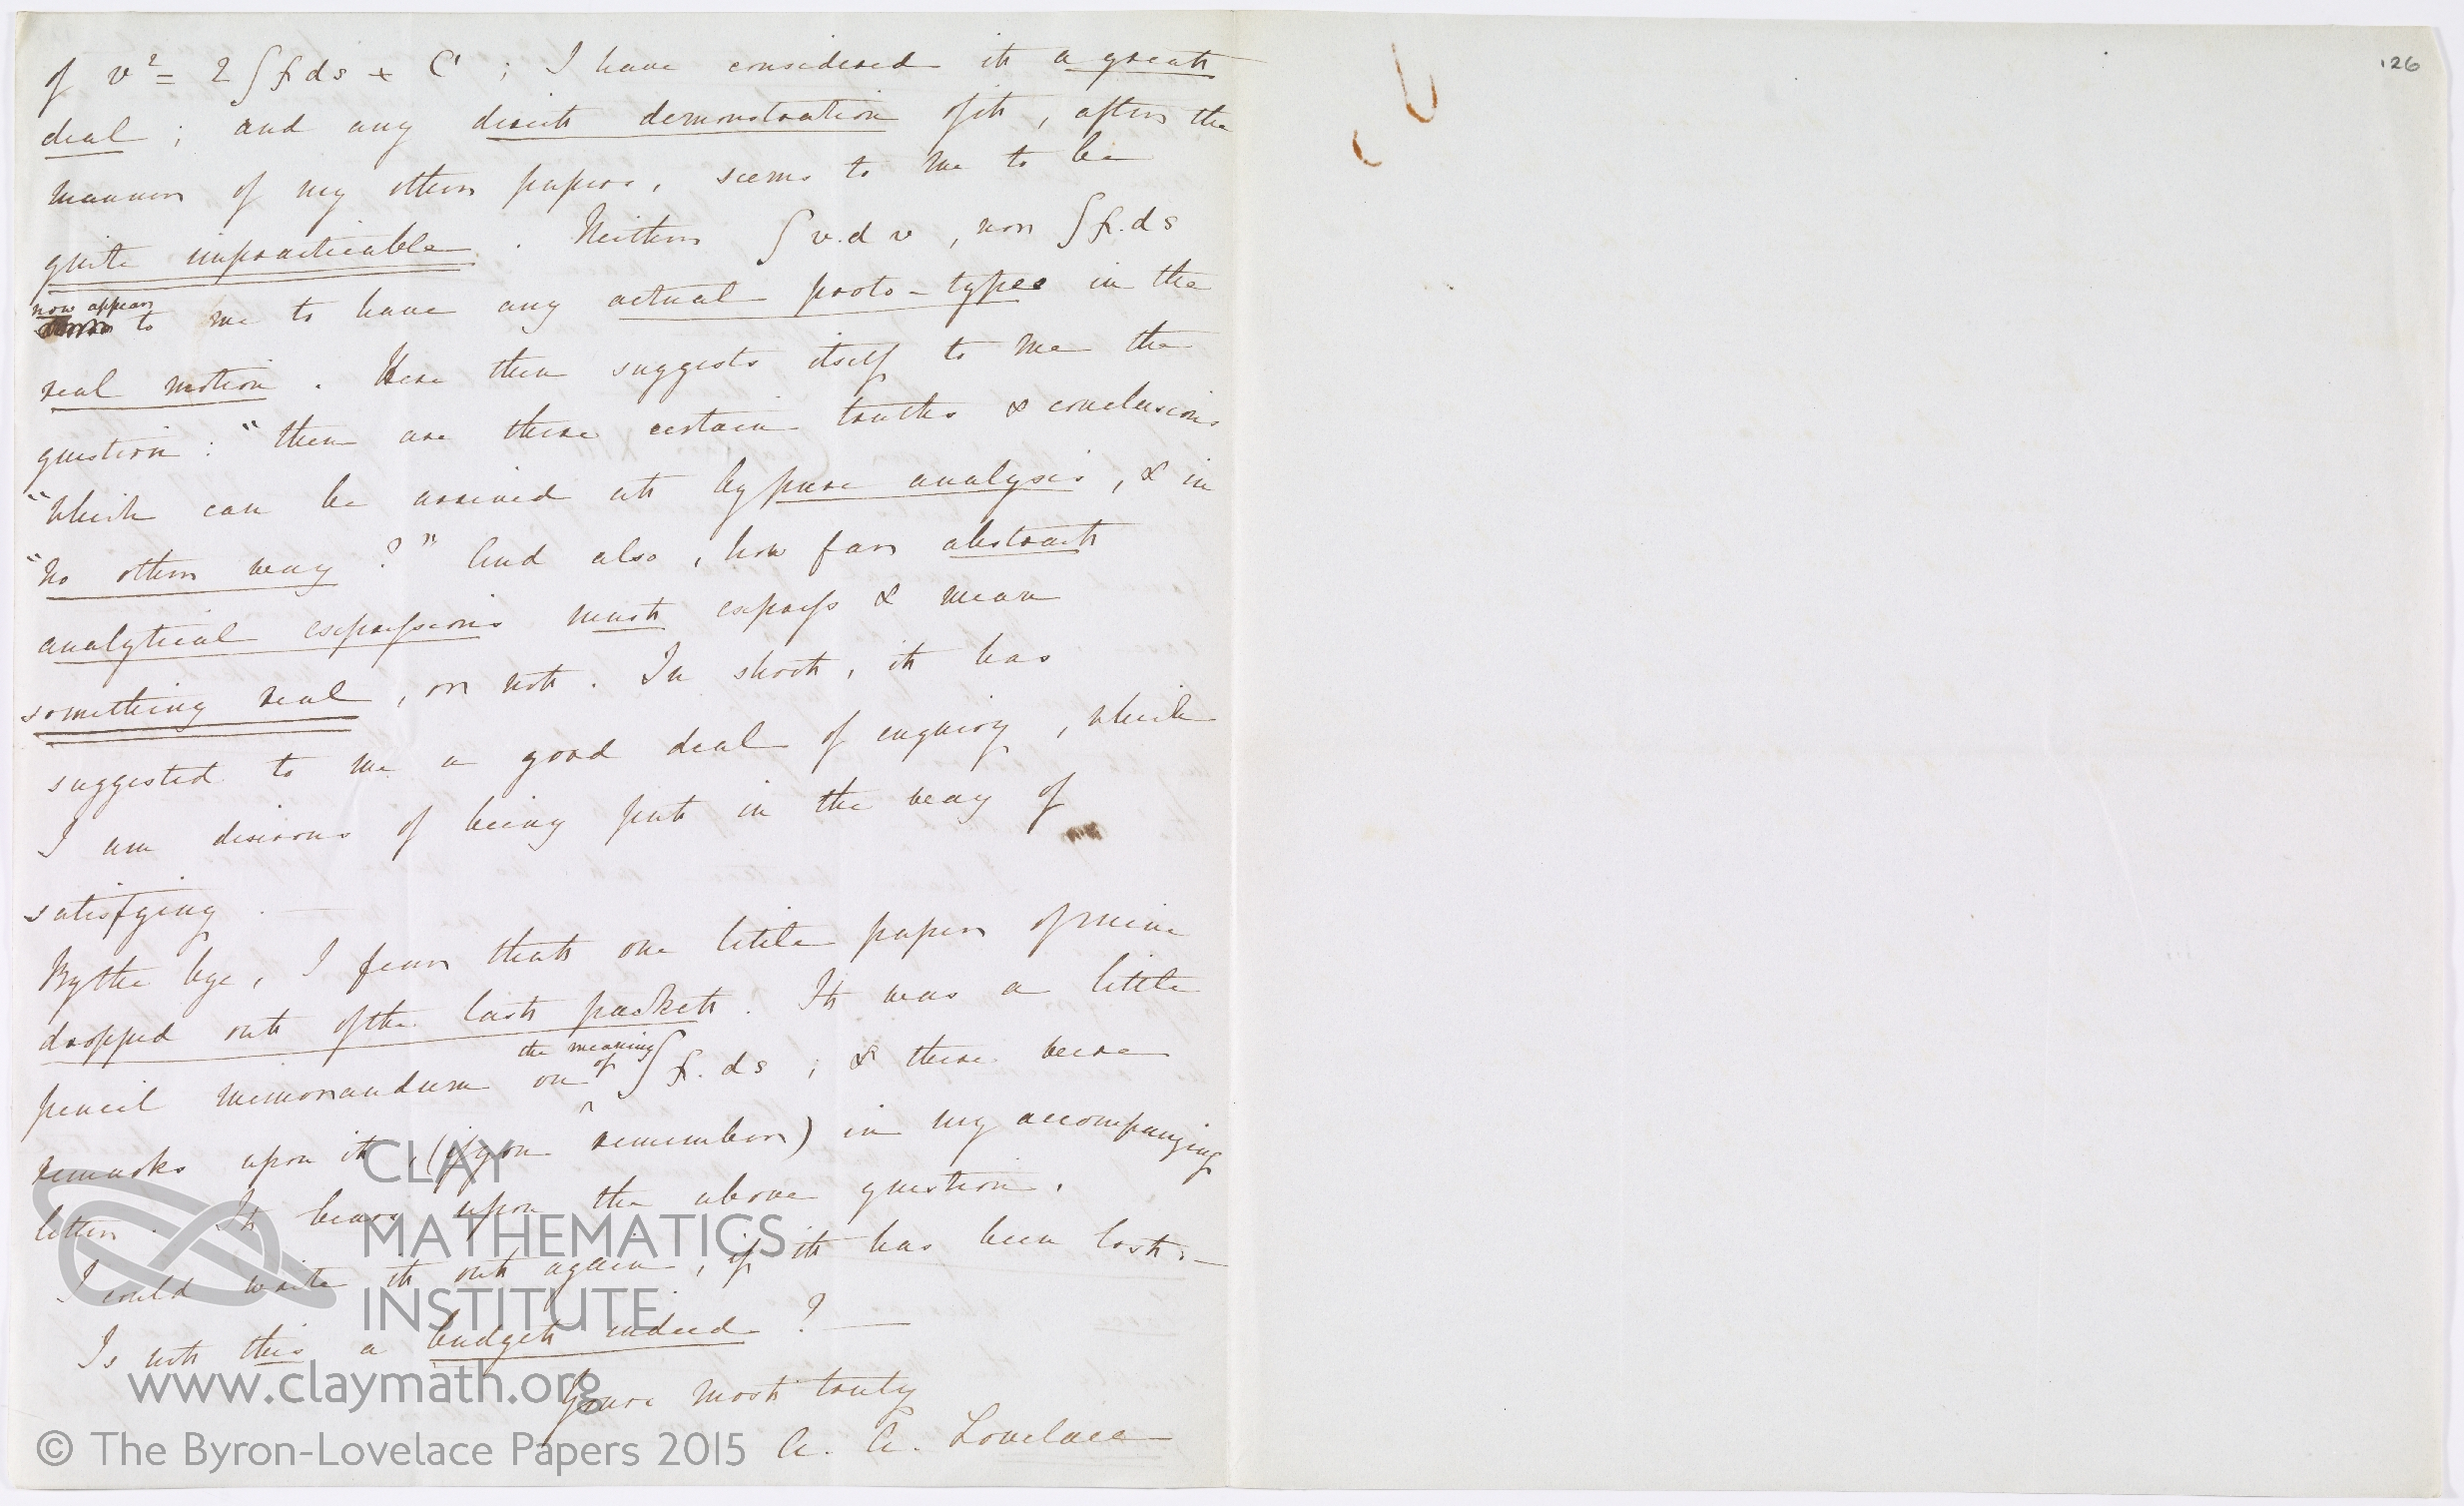 of v² = 2∫f ds + C ; I have considered it a great
deal ; and any direct demonstration of it, after the
manner of my other papers, seems to me to be
quite impracticable. Neither ∫v.dv, nor ∫f.ds
now appear
to me to have any actual proto-types in the
real motion. Here then suggests itself to me the
question : "then are there certain truths & conclusions
"which can be arrived at by pure analysis, & in
"no other way?" And also, how far abstract
analytical expressions must express & mean
something real, or not. In short, it has
suggested to me a good deal of enquiry, which
I am desirous of being put in the way of
satisfying. —
By the bye, I fear that one little paper of mine
dropped out of the last packet. It was a little
the meaning of
pencil memorandum on ∫f.ds ; & there were
remarks upon it, (if you remember) in my accompanying
letter. It bears upon the above question.
I could write it out again, if it has been lost. —
Is not this a budget indeed? —
Yours most truly
A. A. Lovelace
126
CLAY
MATHEMATICS
INSTITUTE
www.claymath.org
© The Byron-Lovelace Papers 2015